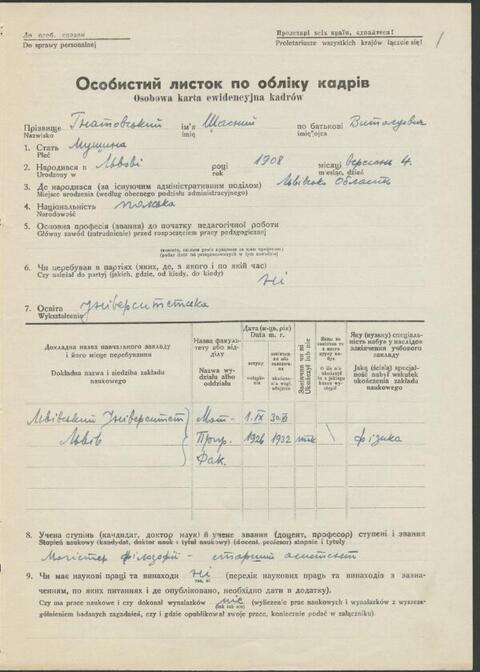 До особ. справи
Do sprawy personalnej
Пролетарі всіх країн, єднайтеся!
Proletariusze wszystkich krajów łączcie się!
1
Особистий листок по обліку кадрів
Osobowa karta ewidencyjna kadrów
Прізвище Гнатовський ім'я Щасний по батькові Витольдович
Nazwisko imię imię ojca
1. Стать Мужчина
Płeć
2. Народився в Львові році 1908 місяці вересень 4.
Urodzony w rok miesiąc, dzień
3. Де народився (за існуючим адміністративним поділом) Львівська Область
Miejsce urodzenia (według obecnego podziału administracyjnego)
4. Національність полька
Narodowość
5. Основна професія (звання) до початку педагогічної роботи
Główny zawód (zatrudnienie) przed rozpoczęciem pracy pedagogicznej
6. Чи перебував в партіях (яких, де, з якого і по якій час)
Czy należał do partyj (jakich, gdzie, od kiedy, do kiedy)
Ні
7. Освіта Університетська
Wykształcenie
Докладна назва навчального закладу і його місце перебування
Dokładna nazwa i siedziba zakładu naukowego
Назва факультету або відділу
Nazwa wydziału albo oddziału
Дата (м-ць, рік)
Data m. r.
вступу
Закінчив чи ні
Ukończył lub nie
Яку (вузьку) спеціальність набув у наслідок закінчення учбового закладу
Jaką (ścisłą) specjalność nabył wskutek ukończenia zakładu naukowego
Львівський Університет Мат- 1.IX
Львов Прир. 1926 1932 так фізика
Фак.
8. Учена ступінь (кандидат, доктор наук) й учене звання (доцент, професор) ступені і звання
Stopień naukowy (kandydat, doktor nauk i tytuł naukowy) (docent, profesor) stopnie i tytuły
Магістер філософії - старший асистент
9. Чи має наукові праці та винаходи ні (перелік наукових праць та винаходів з зазначенням, по яких питаннях і де опубліковано, необхідно дати в додатку).
так, ні
Czy ma prace naukowe i czy dokonał wynalazków nie (wyliczenie prac naukowych i wynalazków z wyszczególnieniem badanych zagadnień, czy i gdzie opublikował swoje prace, koniecznie podać w załączniku).
(tak lub nie)